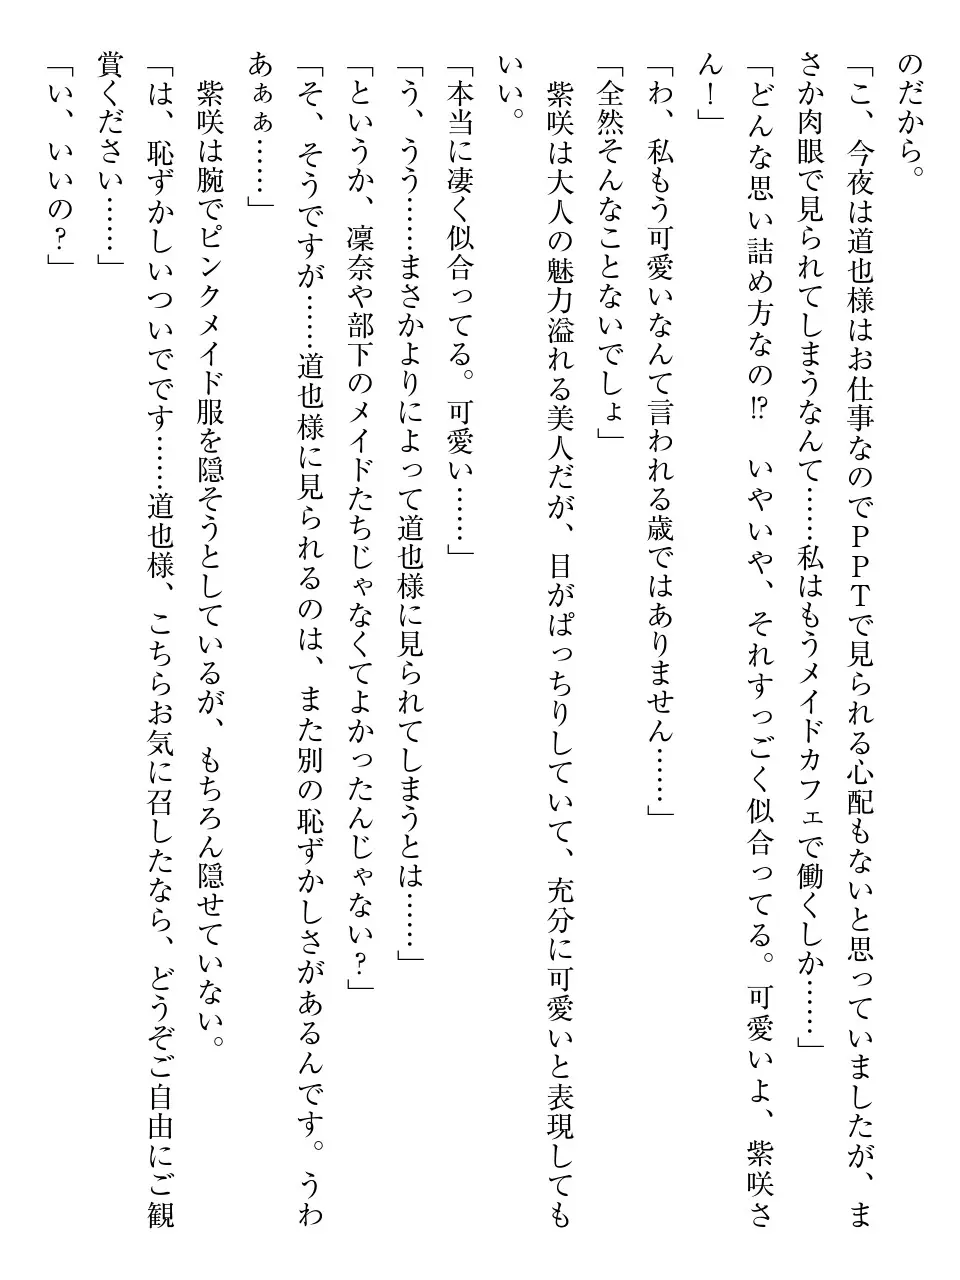 のだから。
「こ、今夜は道也様はお仕事なのでＰＰＴで見られる心配もないと思っていましたが、ま
さか肉眼で見られてしまうなんて……私はもうメイドカフェで働くしか……」
「どんな思い詰め方なの⁉　いやいや、それすっごく似合ってる。可愛いよ、紫咲さ
ん！」
「わ、私もう可愛いなんて言われる歳ではありません……」
「全然そんなことないでしょ」
　紫咲は大人の魅力溢れる美人だが、目がぱっちりしていて、充分に可愛いと表現しても
いい。
「本当に凄く似合ってる。可愛い……」
「う、うう……まさかよりによって道也様に見られてしまうとは……」
「というか、凜奈や部下のメイドたちじゃなくてよかったんじゃない？」
「そ、そうですが……道也様に見られるのは、また別の恥ずかしさがあるんです。うわ
あぁぁ……」
　紫咲は腕でピンクメイド服を隠そうとしているが、もちろん隠せていない。
「は、恥ずかしいついでです……道也様、こちらお気に召したなら、どうぞご自由にご観
賞ください……」
「い、いいの？」